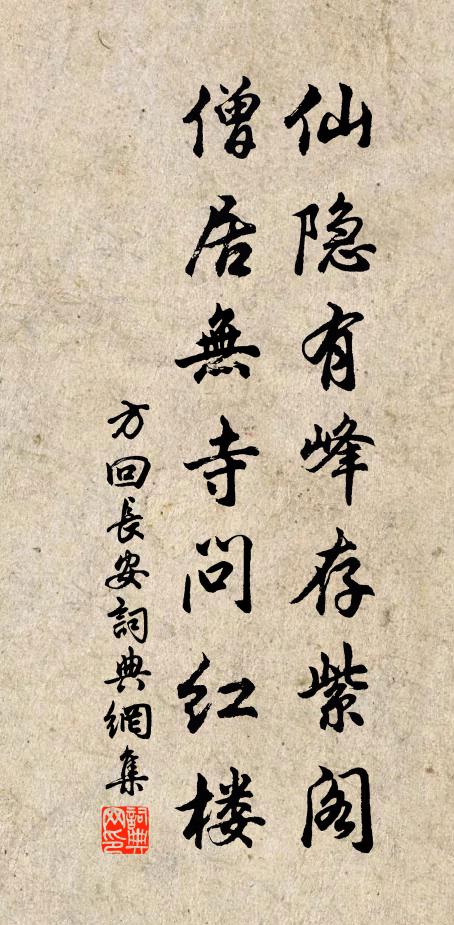 仙隐有峰存紫阁
僧居無寺问红楼
方回長安詞典網集
詞典網印